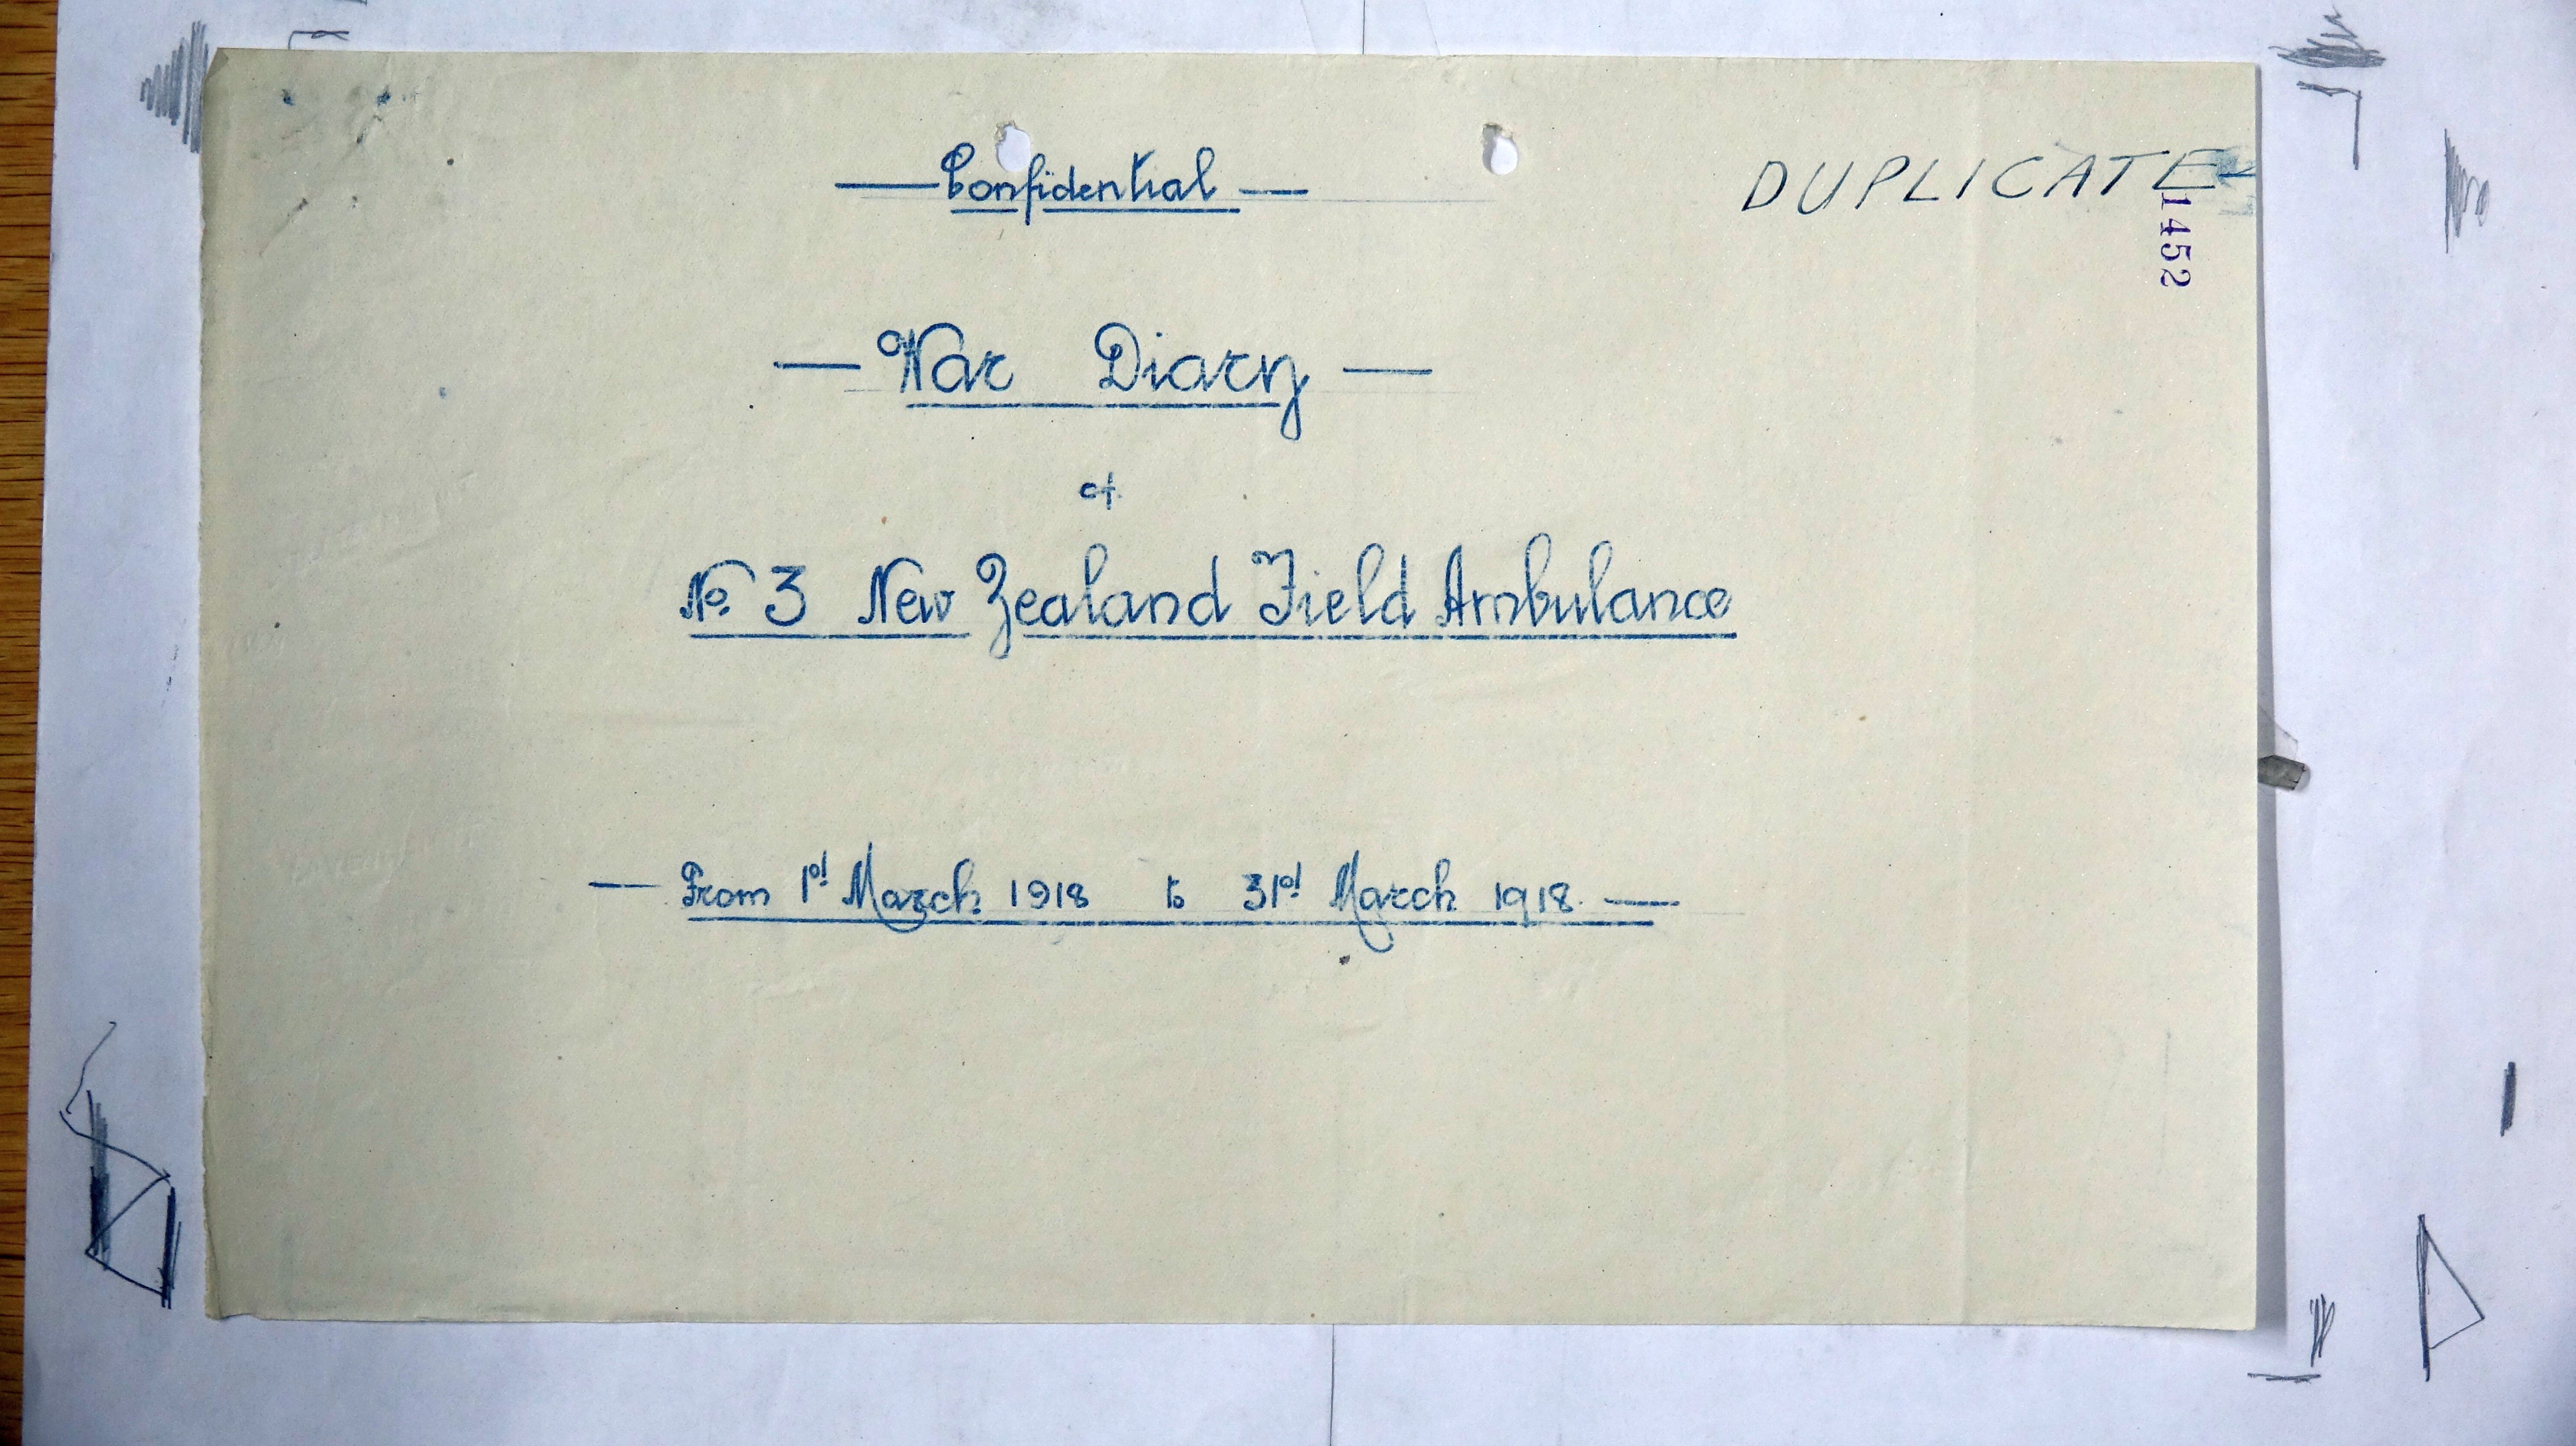 — Confidential —
DUPLICATE
1452
— War Diary —
of
No. 3 New Zealand Field Ambulance
— From 1st March 1918 to 31st March 1918. —